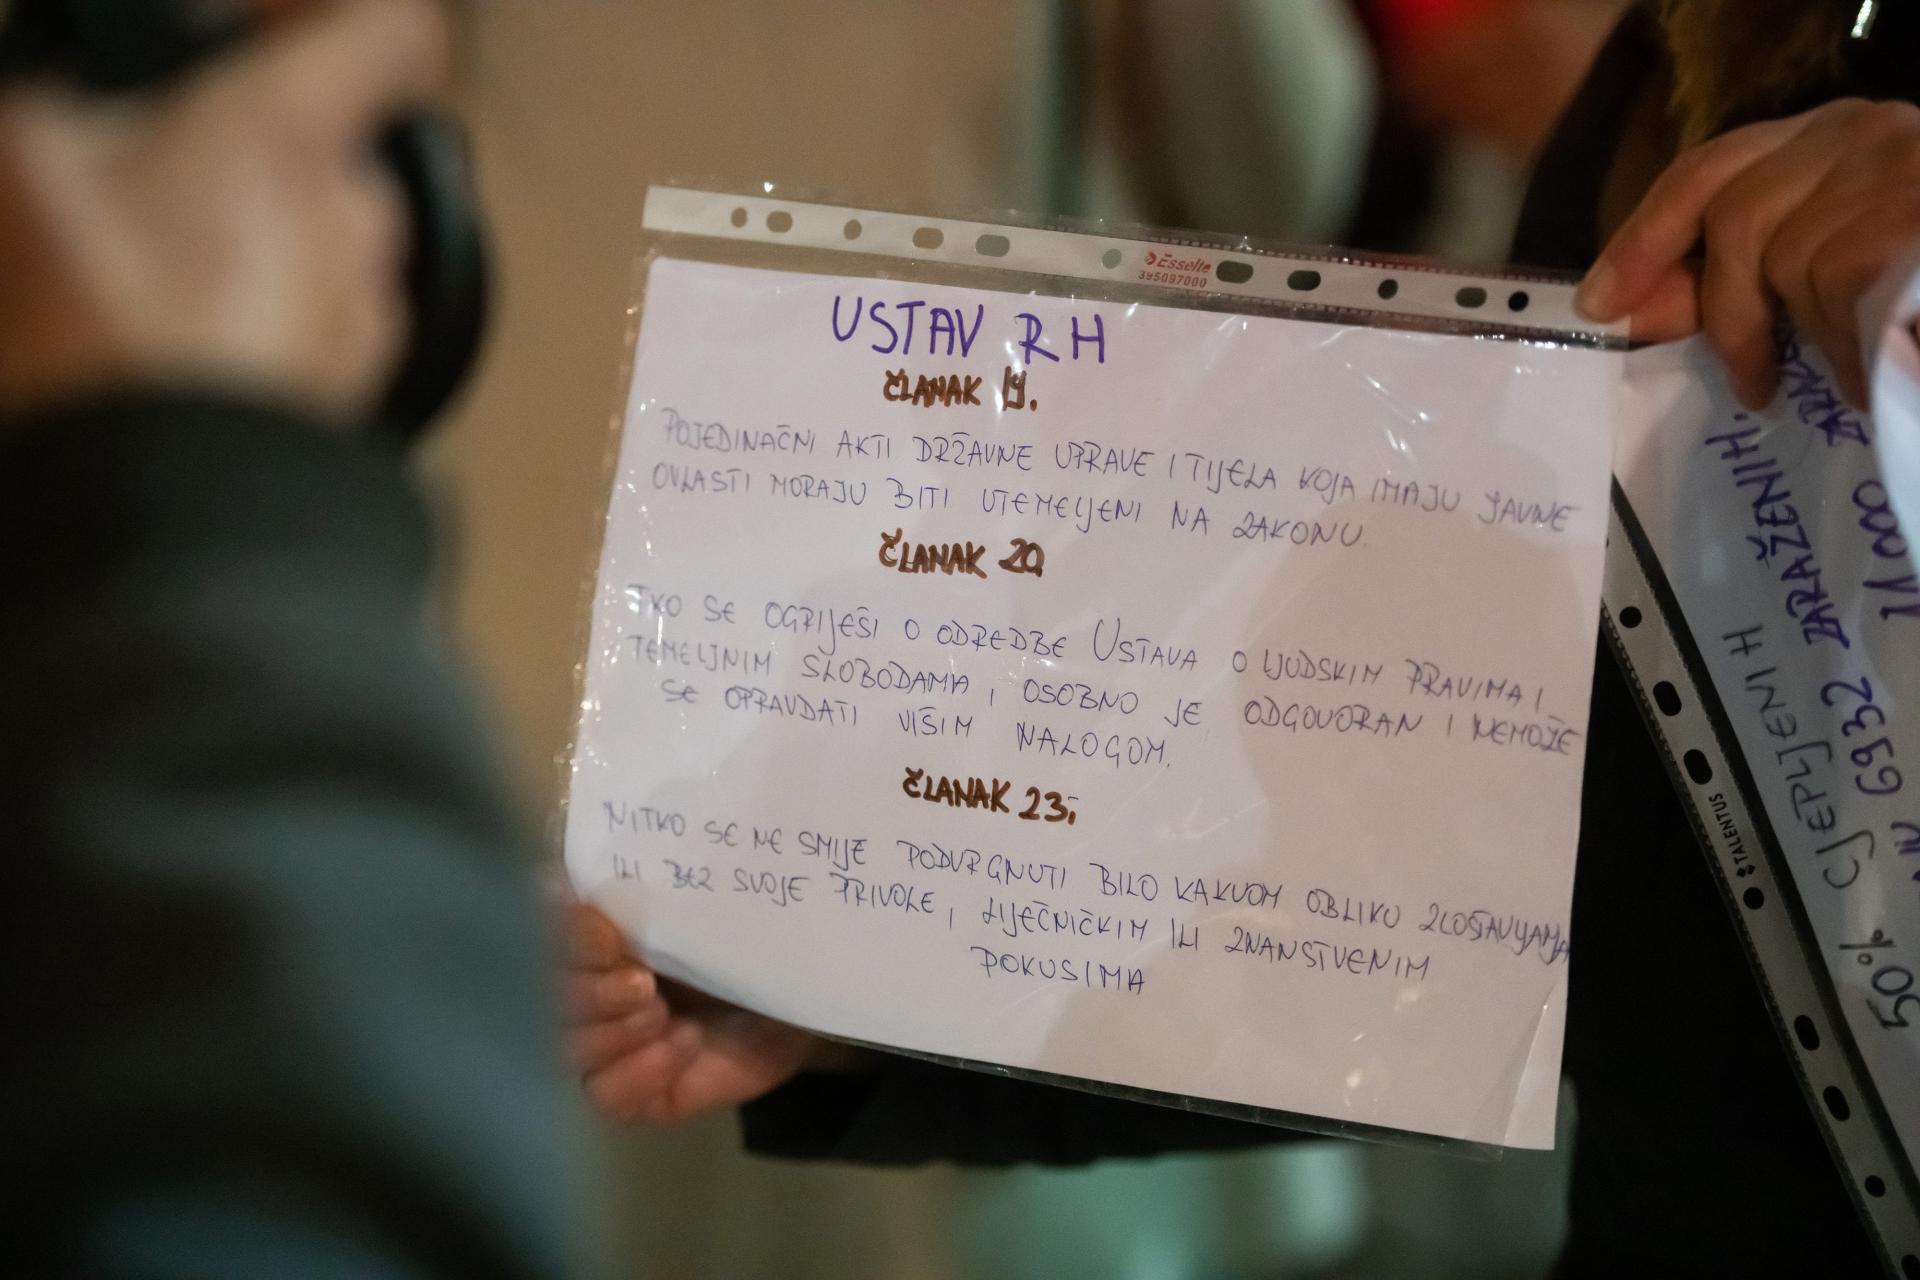 Esselte
395097000
USTAV RH
ČLANAK 19.
POJEDINAČNI AKTI DRŽAVNE UPRAVE I TIJELA KOJA IMAJU JAVNE
OVLASTI MORAJU BITI UTEMELJENI NA ZAKONU.
ČLANAK 20
TKO SE OGRIJEŠI O ODREDBE USTAVA O LJUDSKIM PRAVIMA I
TEMELJNIM SLOBODAMA, OSOBNO JE ODGOVORAN I NEMOŽE
SE OPRAVDATI VIŠIM NALOGOM.
ČLANAK 23.
NITKO SE NE SMIJE PODVRGNUTI BILO KAKVOM OBLIKU ZLOSTAVLJAMA
ILI BEZ SVOJE PRIVOLE, LIJEČNIČKIM ILI ZNANSTVENIM
POKUSIMA
STALENTUS
50% CJEPLJENIH
6932 ZARAŽENIH.
11000